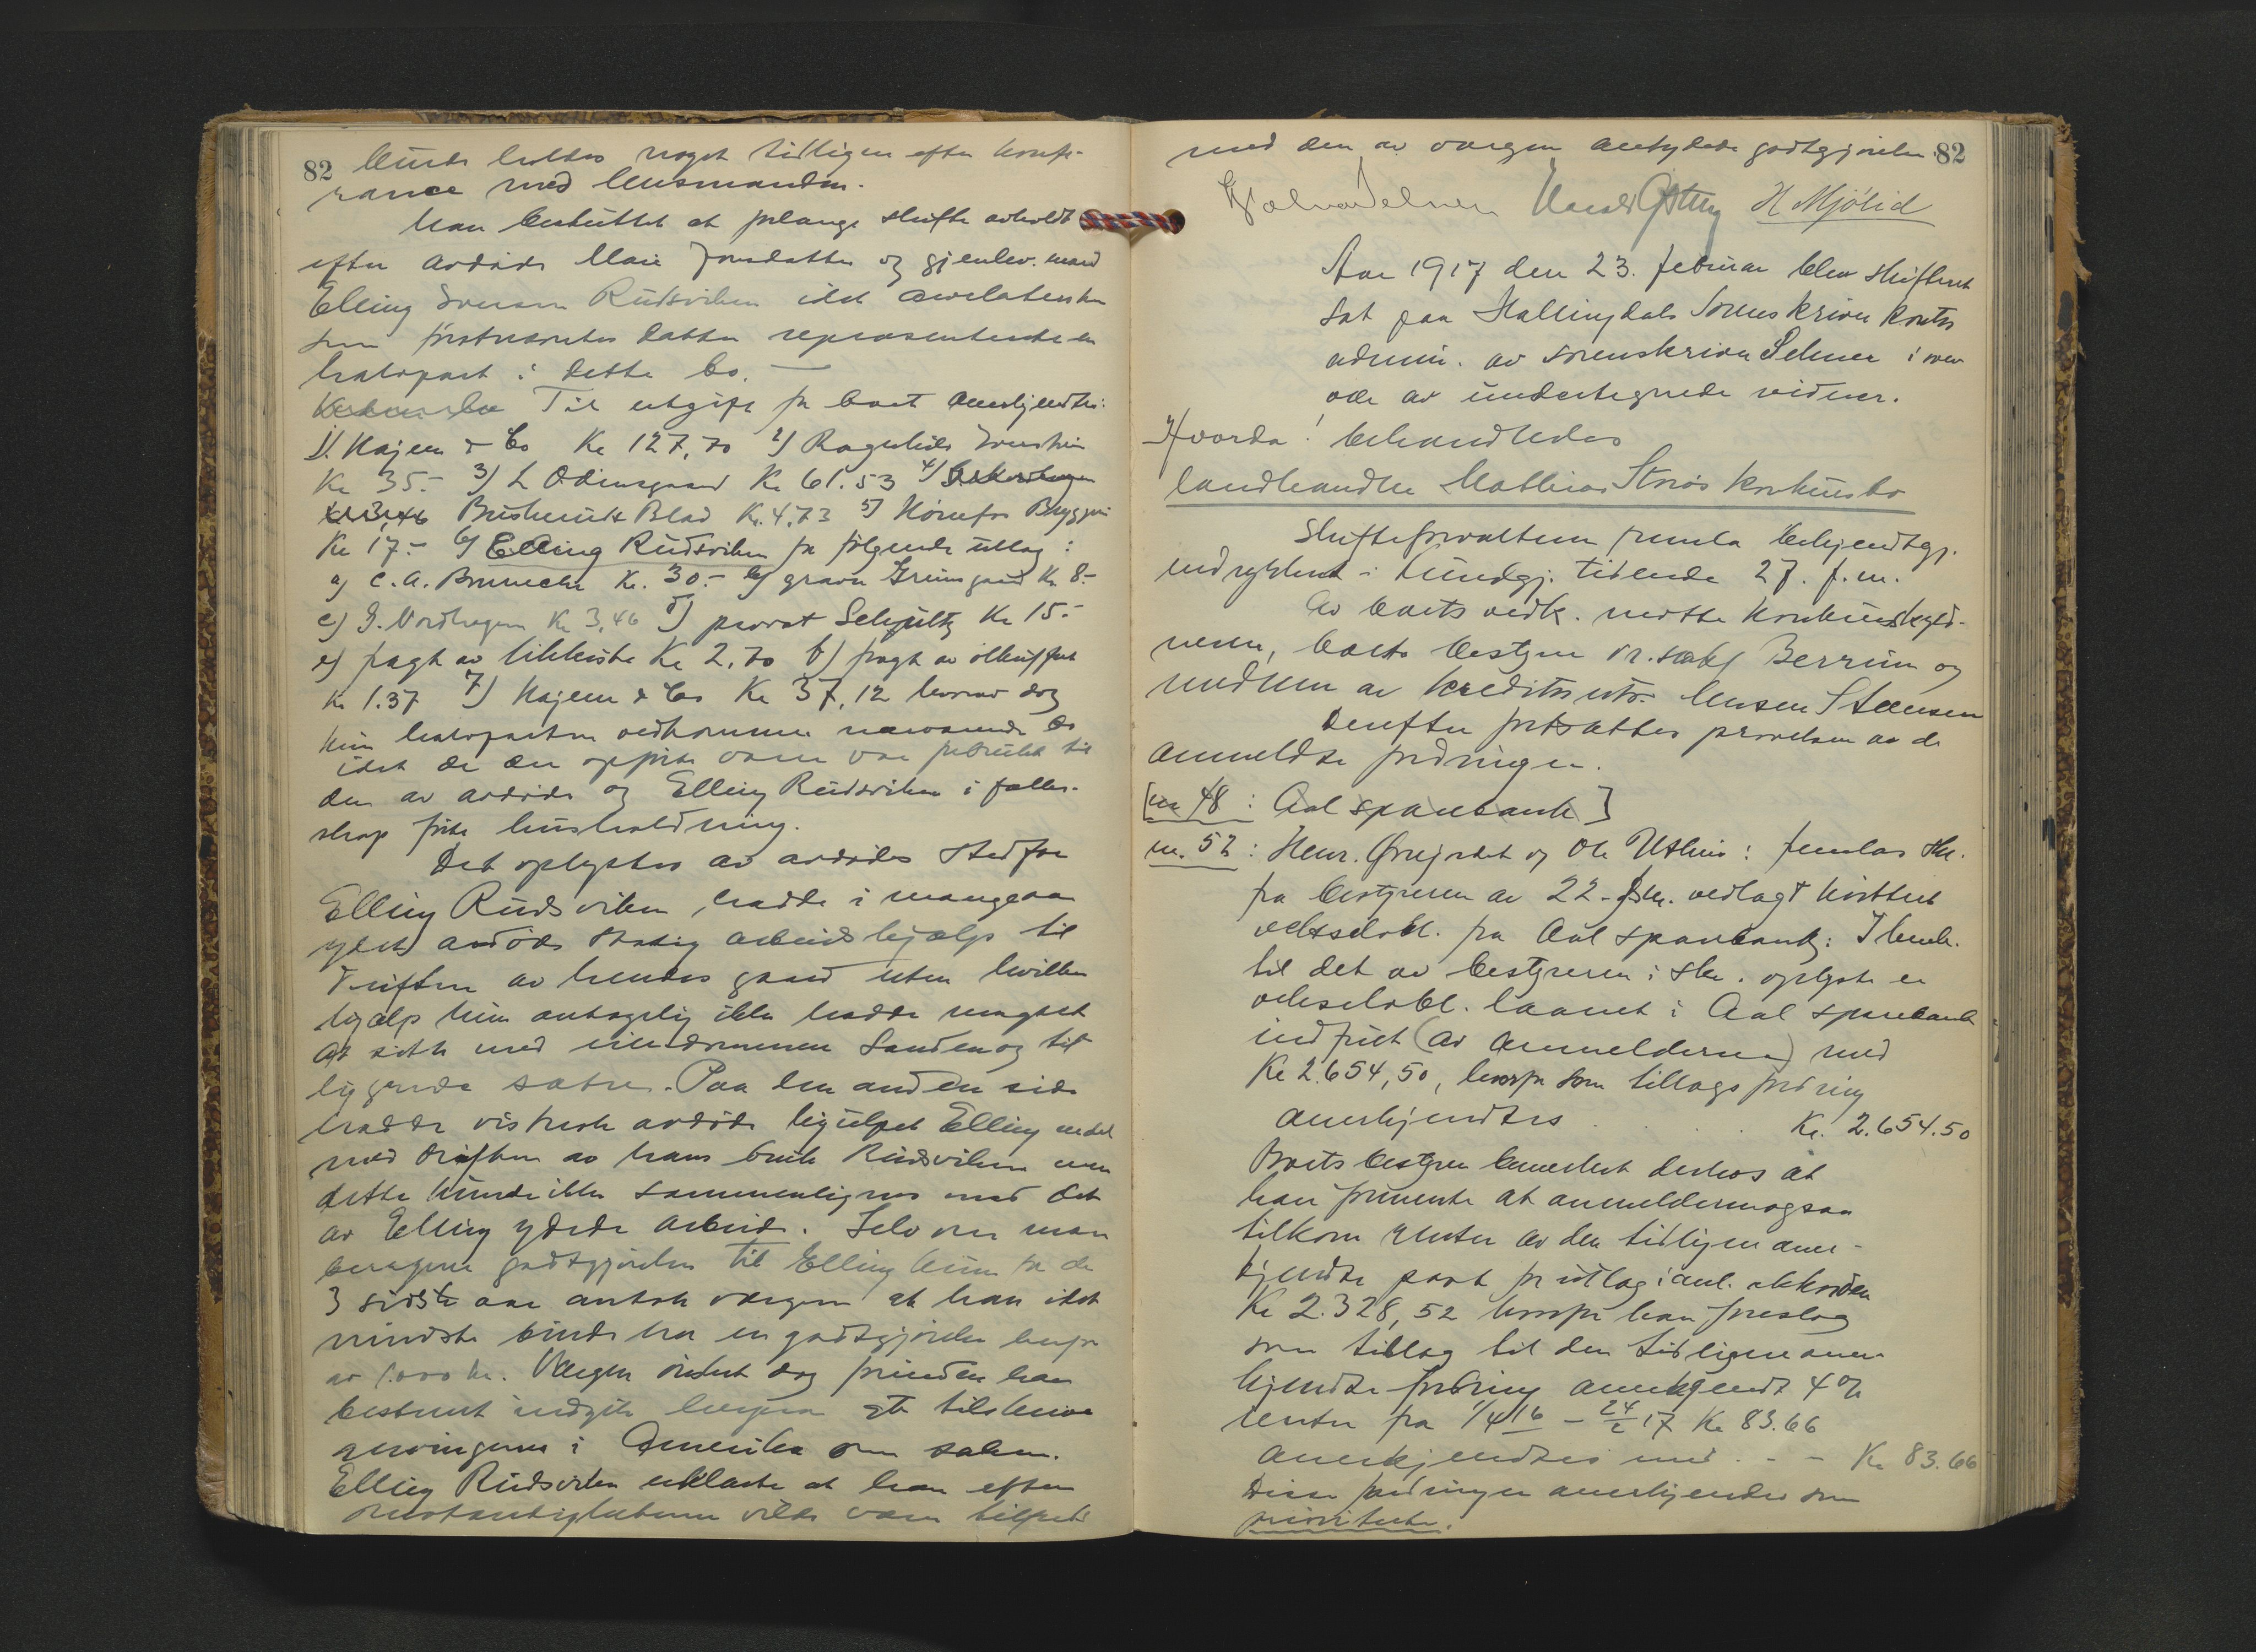 82
kunde holdes noget tidligere efter konfe-
rance med lensmanden.
Man besluttet at forlange skifte avholdt
efter avdøde Marie Jonsdatter og gjenlev. mand
Elling Svensen Rudsviken idet
som datter repræsenterte en
halvpart i dette bo.
Til utgift for boet anerkjendtes:
1). Majem & Co Kr 127,70 2) Ragnhild
Kr 35.- 3) L Odensgaard Kr 61.53 4)
Kr 3,46 Buskeruds Blad Kr. 4,73 5) Hønefos Bryggeri
Kr 17.- 6) Elling Rudsviken for følgende utlæg:
a) C. A. Kr. 30.- b) graver Grimsgaard Kr 8.-
c) G. Nordhagen Kr 3,46 d) provst Schjultz Kr 15.-
e) fragt av likkiste Kr 2,70 f) fragt av
Kr 1.37 7) Majem & Co Kr 37,12 hvorav dog
kun halvparten vedkommer nærværende bo
idet de der opførte varer var forbrukt til
den av avdøde og Elling Rudsviken i fælles-
skap førte husholdning.
Det oplystes av avdødes
Elling Rudsviken hadde i mange aar
ydet avdøde stadig arbeidshjælp til
driften av hendes gaard uten hvilken
hjælp hun antagelig ikke hadde magtet
at sitte med eiendommene Sanden og til
liggende sætre. Paa den anden side
hadde visstnok avdøde hjulpet Elling endel
med driften av hans bruk Rudsviken men
dette kunde ikke sammenlignes med det
av Elling ydede arbeid. Selv om man
beregner godtgjørelse til Elling kun for de
3 sidste aar antok vergen at han idet
mindste burde ha en godtgjørelse herfor
av 1.000 kr. Vergen ønsket dog forinden han
bestemt indgik herpaa at tilskrive
arvingerne i Amerika om saken.
Elling Rudsviken erklærte at han efter
omstændighetene vilde være tilfreds
82
med den av vergen antydede godtgjørelse.
H Mjölid
Aar 1917 den 23. februar blev skifteret
sat paa Hallingdals Sorenskriver kontor
admin. av sorenskriver Selmer i over
vær av undertegnede vidner.
Hvorda! behandledes
landhandler Mathias Storøs konkursbo
Skifteforvalteren fremla bekjendtgj.
indrykket i kundgj. tidende 27. f.m.
Av boets vedk. møtte konkursskyld-
neren, boets bestyrer o.r.sakf Berrum og
medlem av kreditorutv. Stensen
Derefter fortsattes prøvelsen av de
anmeldte fordringer.
[nr 48: Aal sparebank]
nr. 52: Henr. Ørngjordet og Ole Uthus: Fremlas skr.
fra bestyreren av 22. ds. vedlagt kvittert
vekselobl. fra Aal sparebank: I henh.
til det av bestyreren i skr. oplyste er
vekselobl. laanet i Aal sparebank
indfriet (av anmelderne) med
Kr 2.654,50, hvorfor som tillægsfordring
anerkjendtes . . . Kr. 2.654.50
Boets bestyrer bemerket derhos at
han formente at anmelderne ogsaa
tilkom renter av den tidligere aner-
kjendte post for utlæg i anl. akkorden
Kr 2.328,52 hvorfor han foreslog
som tillæg til den tidligere aner-
kjendte fordring anerkjendt 4%
renter fra 1/4 16 - 24/2 17 Kr 83.66
anerkjendtes med . - - Kr 83.66
Disse fordringer anerkjendes som
prioriterte.